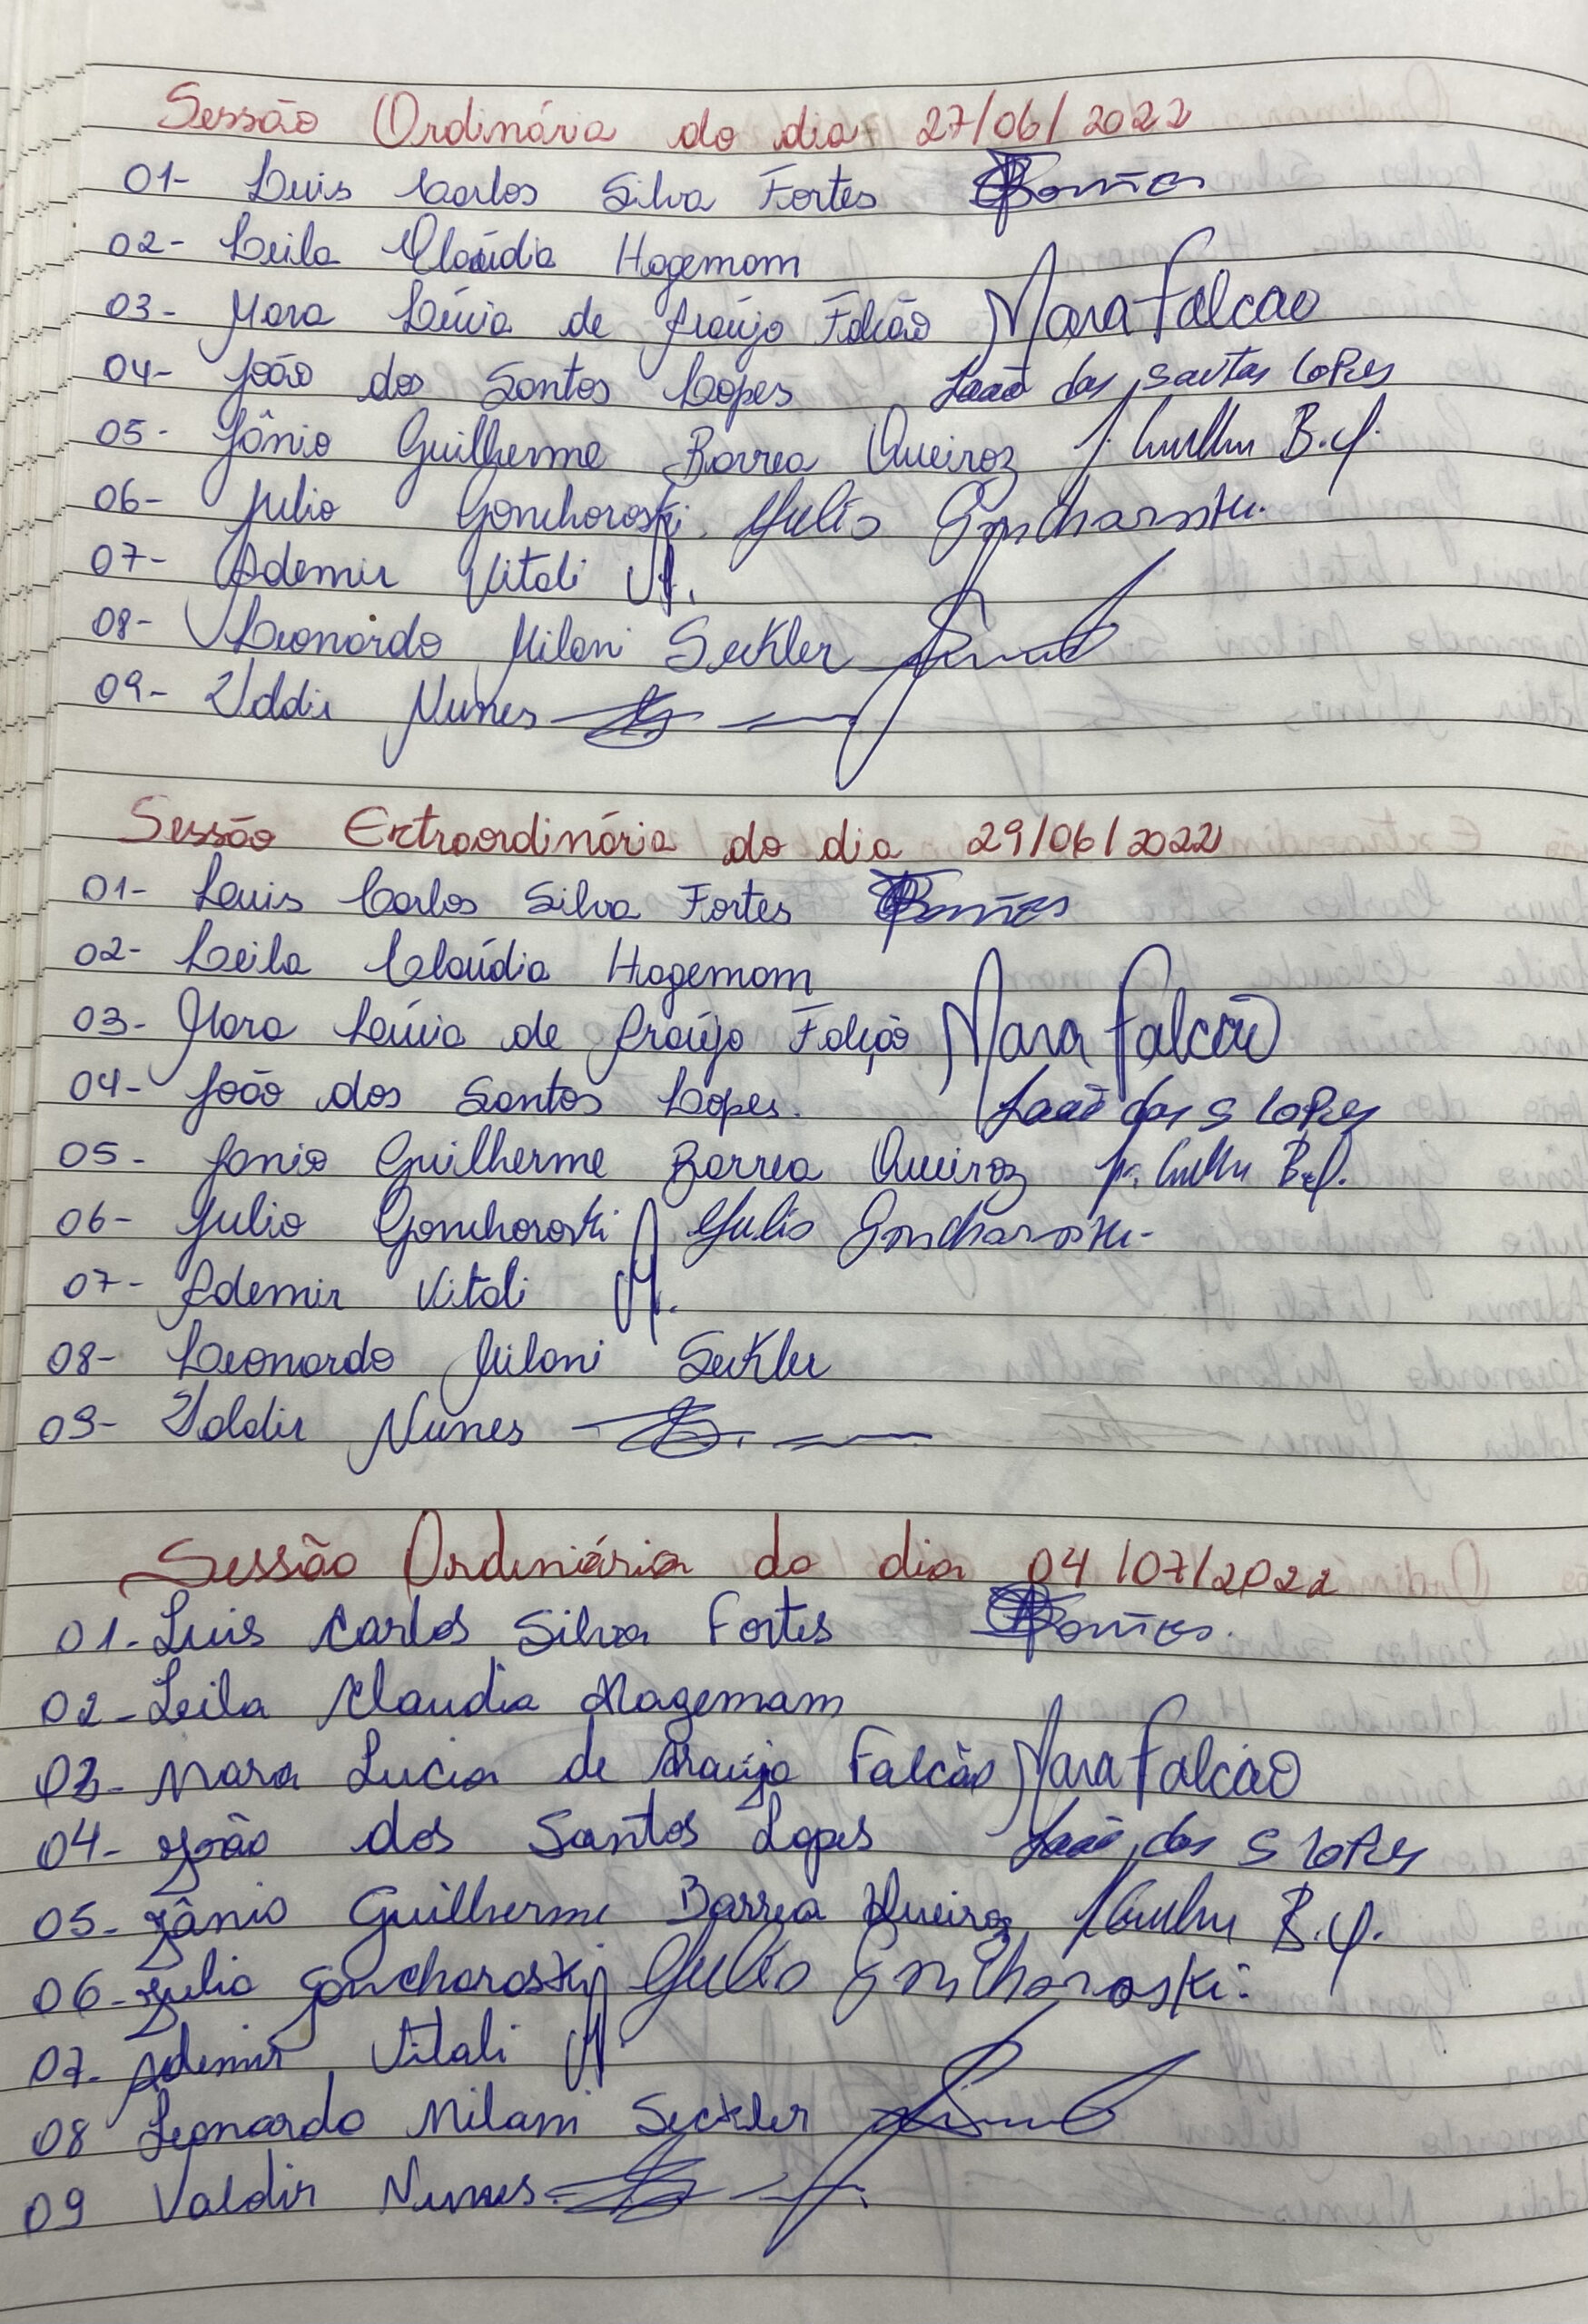 Sessão Ordinária do dia 27/06/2022
01- Luis Carlos Silva Fortes
02- Leila Claúdia Hagemam
03- Mara Lúcia de Araújo Falcão Mara Falcao
04- João dos Santos Lopes João dos santos Lopes
05- Jânio Guilherme Barrea Queiroz J. Guilher B.Q.
06- Julio Gonchoroski. Julio Goncharoski.
07- Ademir Vitali
08- Leonardo Milani Seckler
09- Valdir Nunes
Sessão Extraordinária do dia 29/06/2022
01- Luis Carlos Silva Fortes
02- Leila Claúdia Hagemam
03- Mara Lúcia de Araújo Falcão Mara Falcão
04- João dos Santos Lopes. João dos S Lopes
05- Janio Guilherme Barrea Queiroz J. Guilher B.Q.
06- Julio Gonchoroski Julio Goncharoski-
07- Ademir Vitali
08- Leonardo Milani Seckler
09- Valdir Nunes
Sessão Ordeniária do dia 04/07/2022
01- Luis Carlos Silva Fortes
02- Leila Claudia Hagemam
03- Mara Lucia de Araújo Falcão Mara Falcão
04- João dos Santos Lopes João dos S Lopes
05- Jânio Guilherme Barrea Queiroz J Guilher B.Q.
06- Julio Goncharoski Julio Goncharoski.
07- Ademir Vitali
08 Leonardo Milani Seckler
09 Valdir Nunes